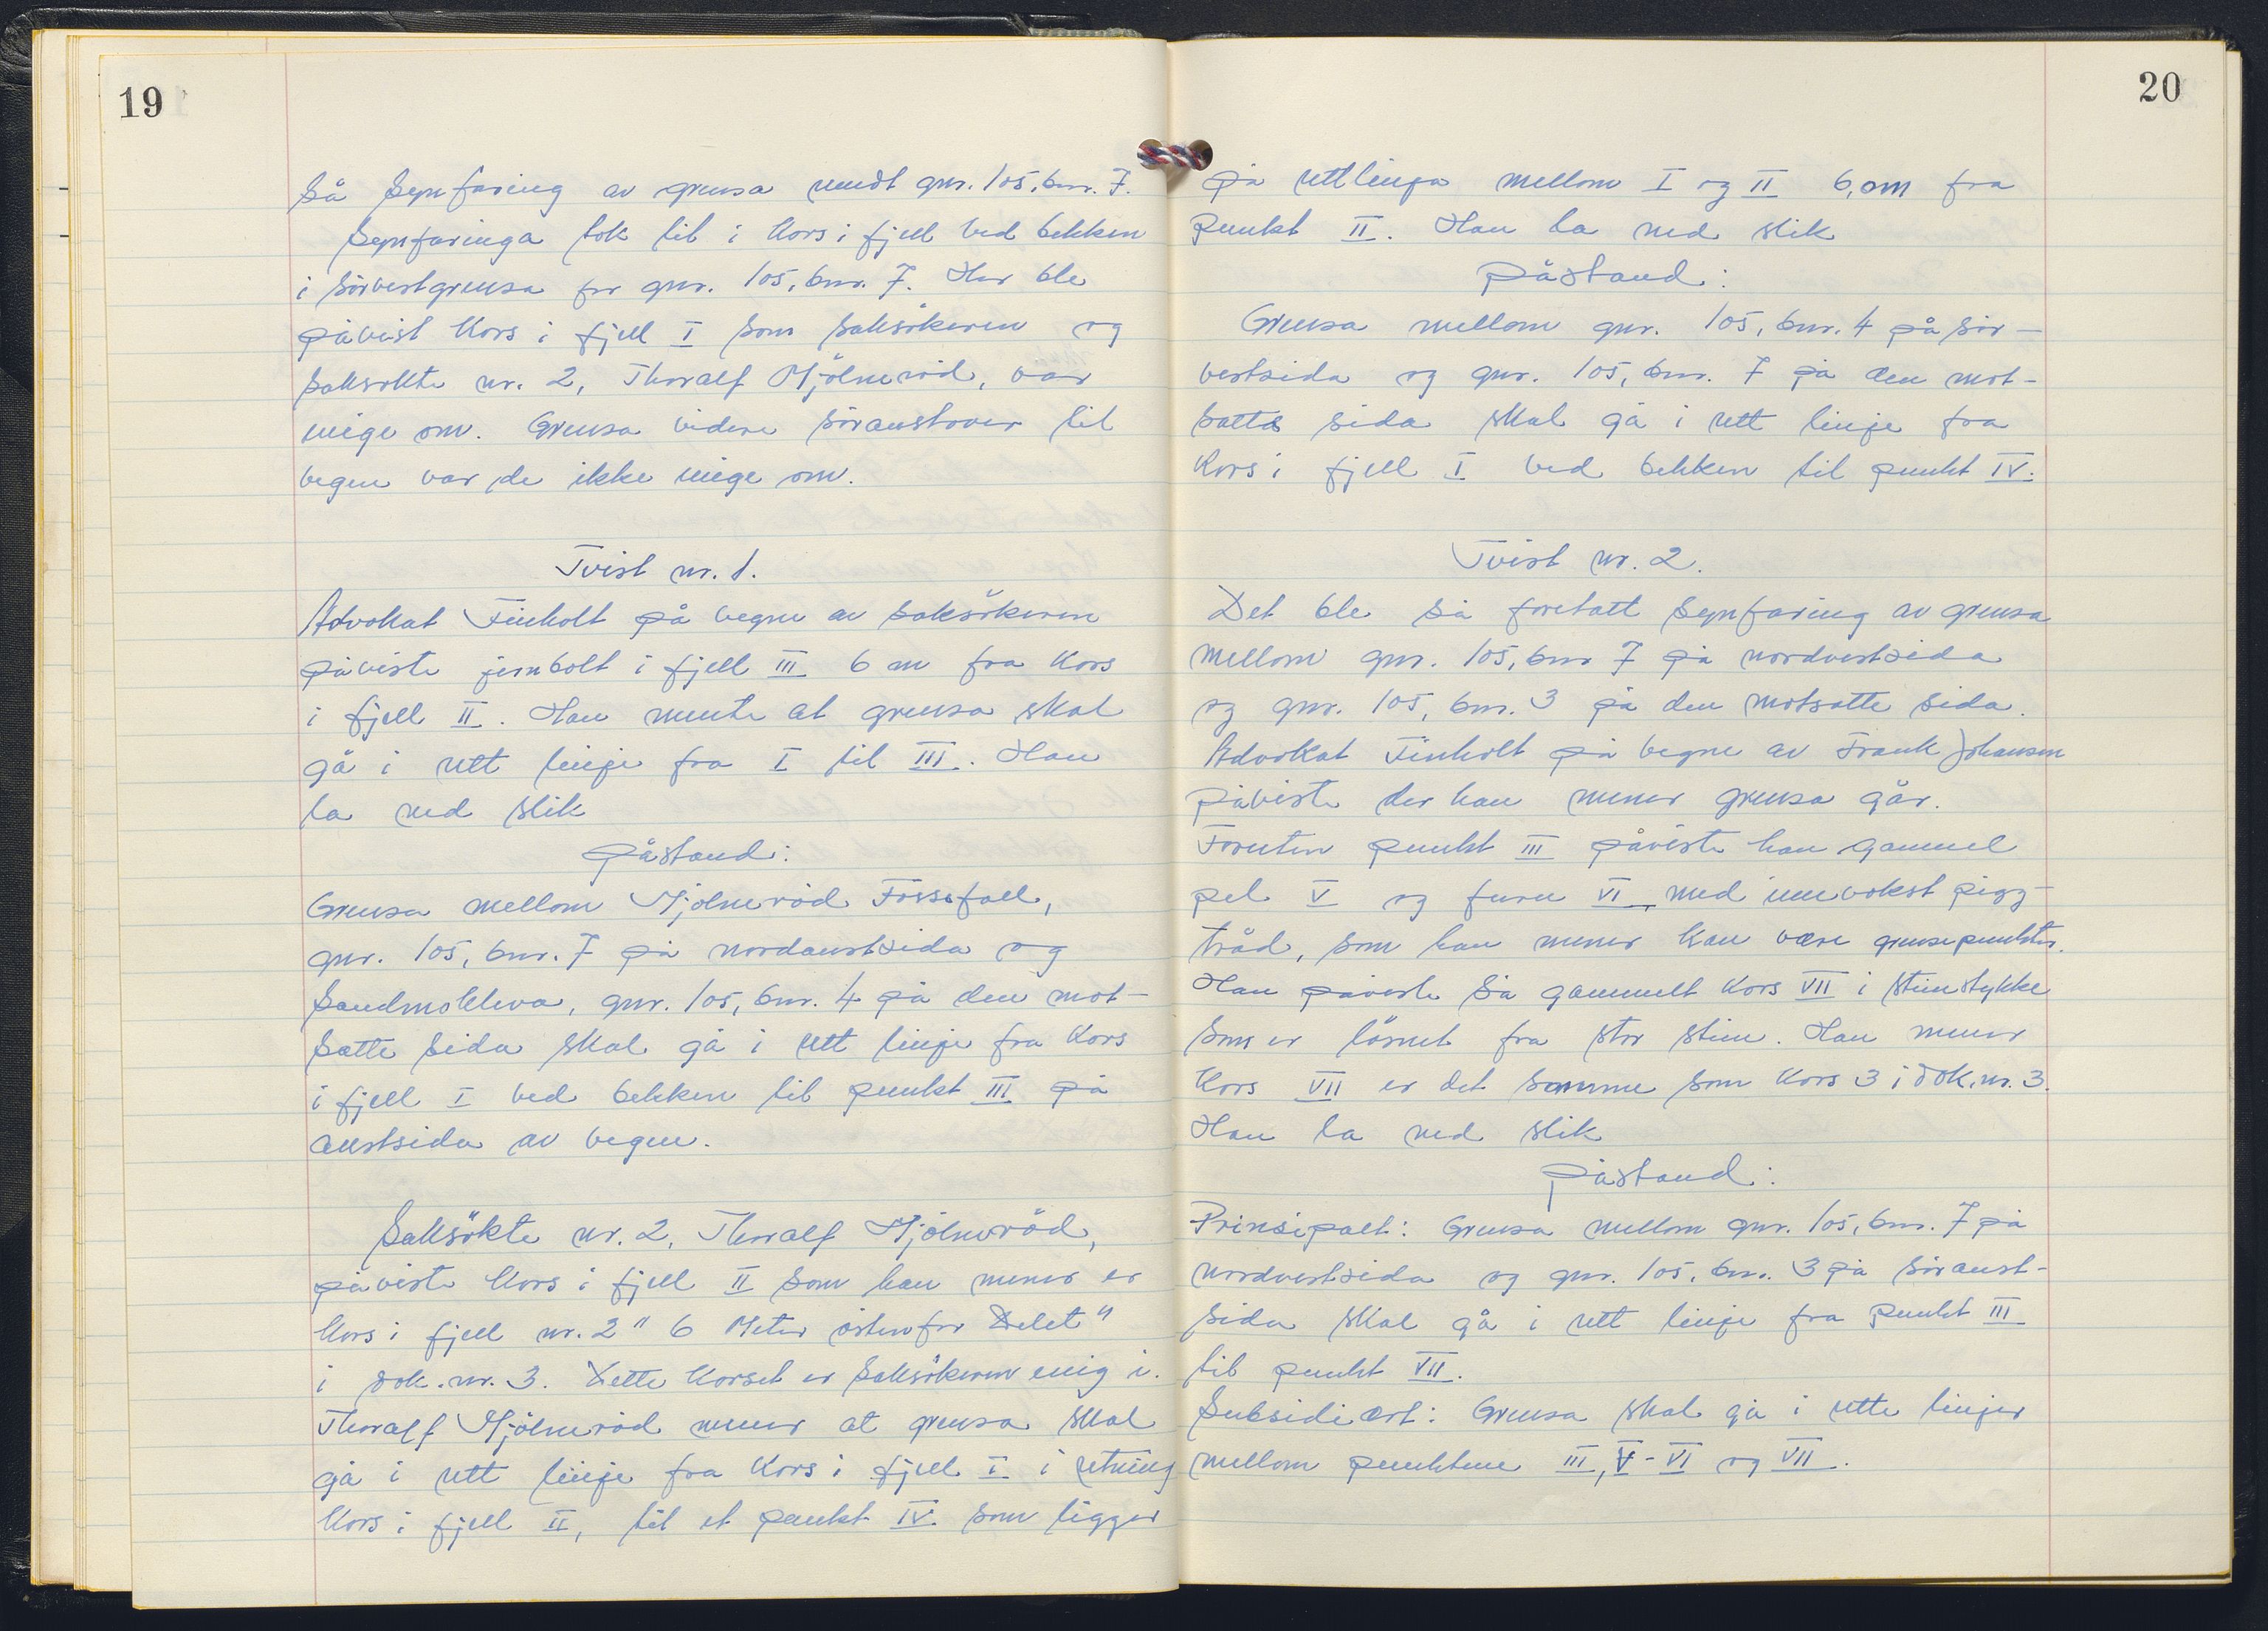 19
Så synfaring av grensa rundt gnr. 105, bnr. 7.
Synfaringa tok til i kors i fjell ved bekken
i sörvestgrensa for gnr. 105, bnr. 7. Her ble
påvist kors i fjell I som saksökeren og
saksökte nr. 2, Thoralf Mjölneröd, var
enige om. Grensa videre söraustover til
vegen var de ikke enige om.
Tvist nr. 1.
Advokat Finholt på vegne av saksökeren
påviste jernbolt i fjell III 6 m fra kors
i fjell II. Han mente at grensa skal
gå i rett linje fra I til III. Han
la ned slik
påstand:
Grensa mellom Mjölneröd Fossefall,
gnr. 105, bnr. 7 på nordaustsida og
Sandmokleva, gnr. 105, bnr. 4 på den mot-
satte sida skal gå i rett linje fra kors
i fjell I ved bekken til punkt III på
austsida av vegen.
Saksökte nr. 2, Thoralf Mjölneröd,
påviste kors i fjell II som han mener er
kors i fjell nr. 2 " 6 Meter östenfor Delet "
i dok. nr. 3. Dette korset er saksökeren enig i.
Thoralf Mjölneröd mener at grensa skal
gå i rett linje fra kors i fjell I i retning
kors i fjell II, til et punkt IV som ligger
20
på rettlinja mellom I og II 6,0m fra
punkt II. Han la ned slik
påstand:
Grensa mellom gnr. 105, bnr. 4 på sör-
vestsida og gnr. 105, bnr. 7 på den mot-
satta sida skal gå i rett linje fra
kors i fjell I ved bekken til punkt IV.
Tvist nr. 2.
Det ble så foretatt synfaring av grensa
mellom gnr. 105, bnr 7 på nordvestsida
og gnr. 105, bnr. 3 på den motsatte sida.
Advokat Finholt på vegne av Frank Johansen
påviste der han mener grensa går.
Foruten punkt III påviste han gammel
pel V og furu VI, med innvokst pigg-
tråd, som han mener kan være grensepunkter.
Han påviste så gammelt kors VII i steinstykke
som er lösnet fra stor stein. Han mener
kors VII er det samme som kors 3 i dok. nr. 3.
Han la ned slik
påstand:
Prinsipalt: Grensa mellom gnr. 105, bnr. 7 på
nordvestsida og gnr. 105, bnr. 3 på söraust-
sida skal gå i rett linje fra punkt III
til punkt VII.
Subsidiært: Grensa skal gå i rette linjer
mellom punktene III, V - VI og VII.